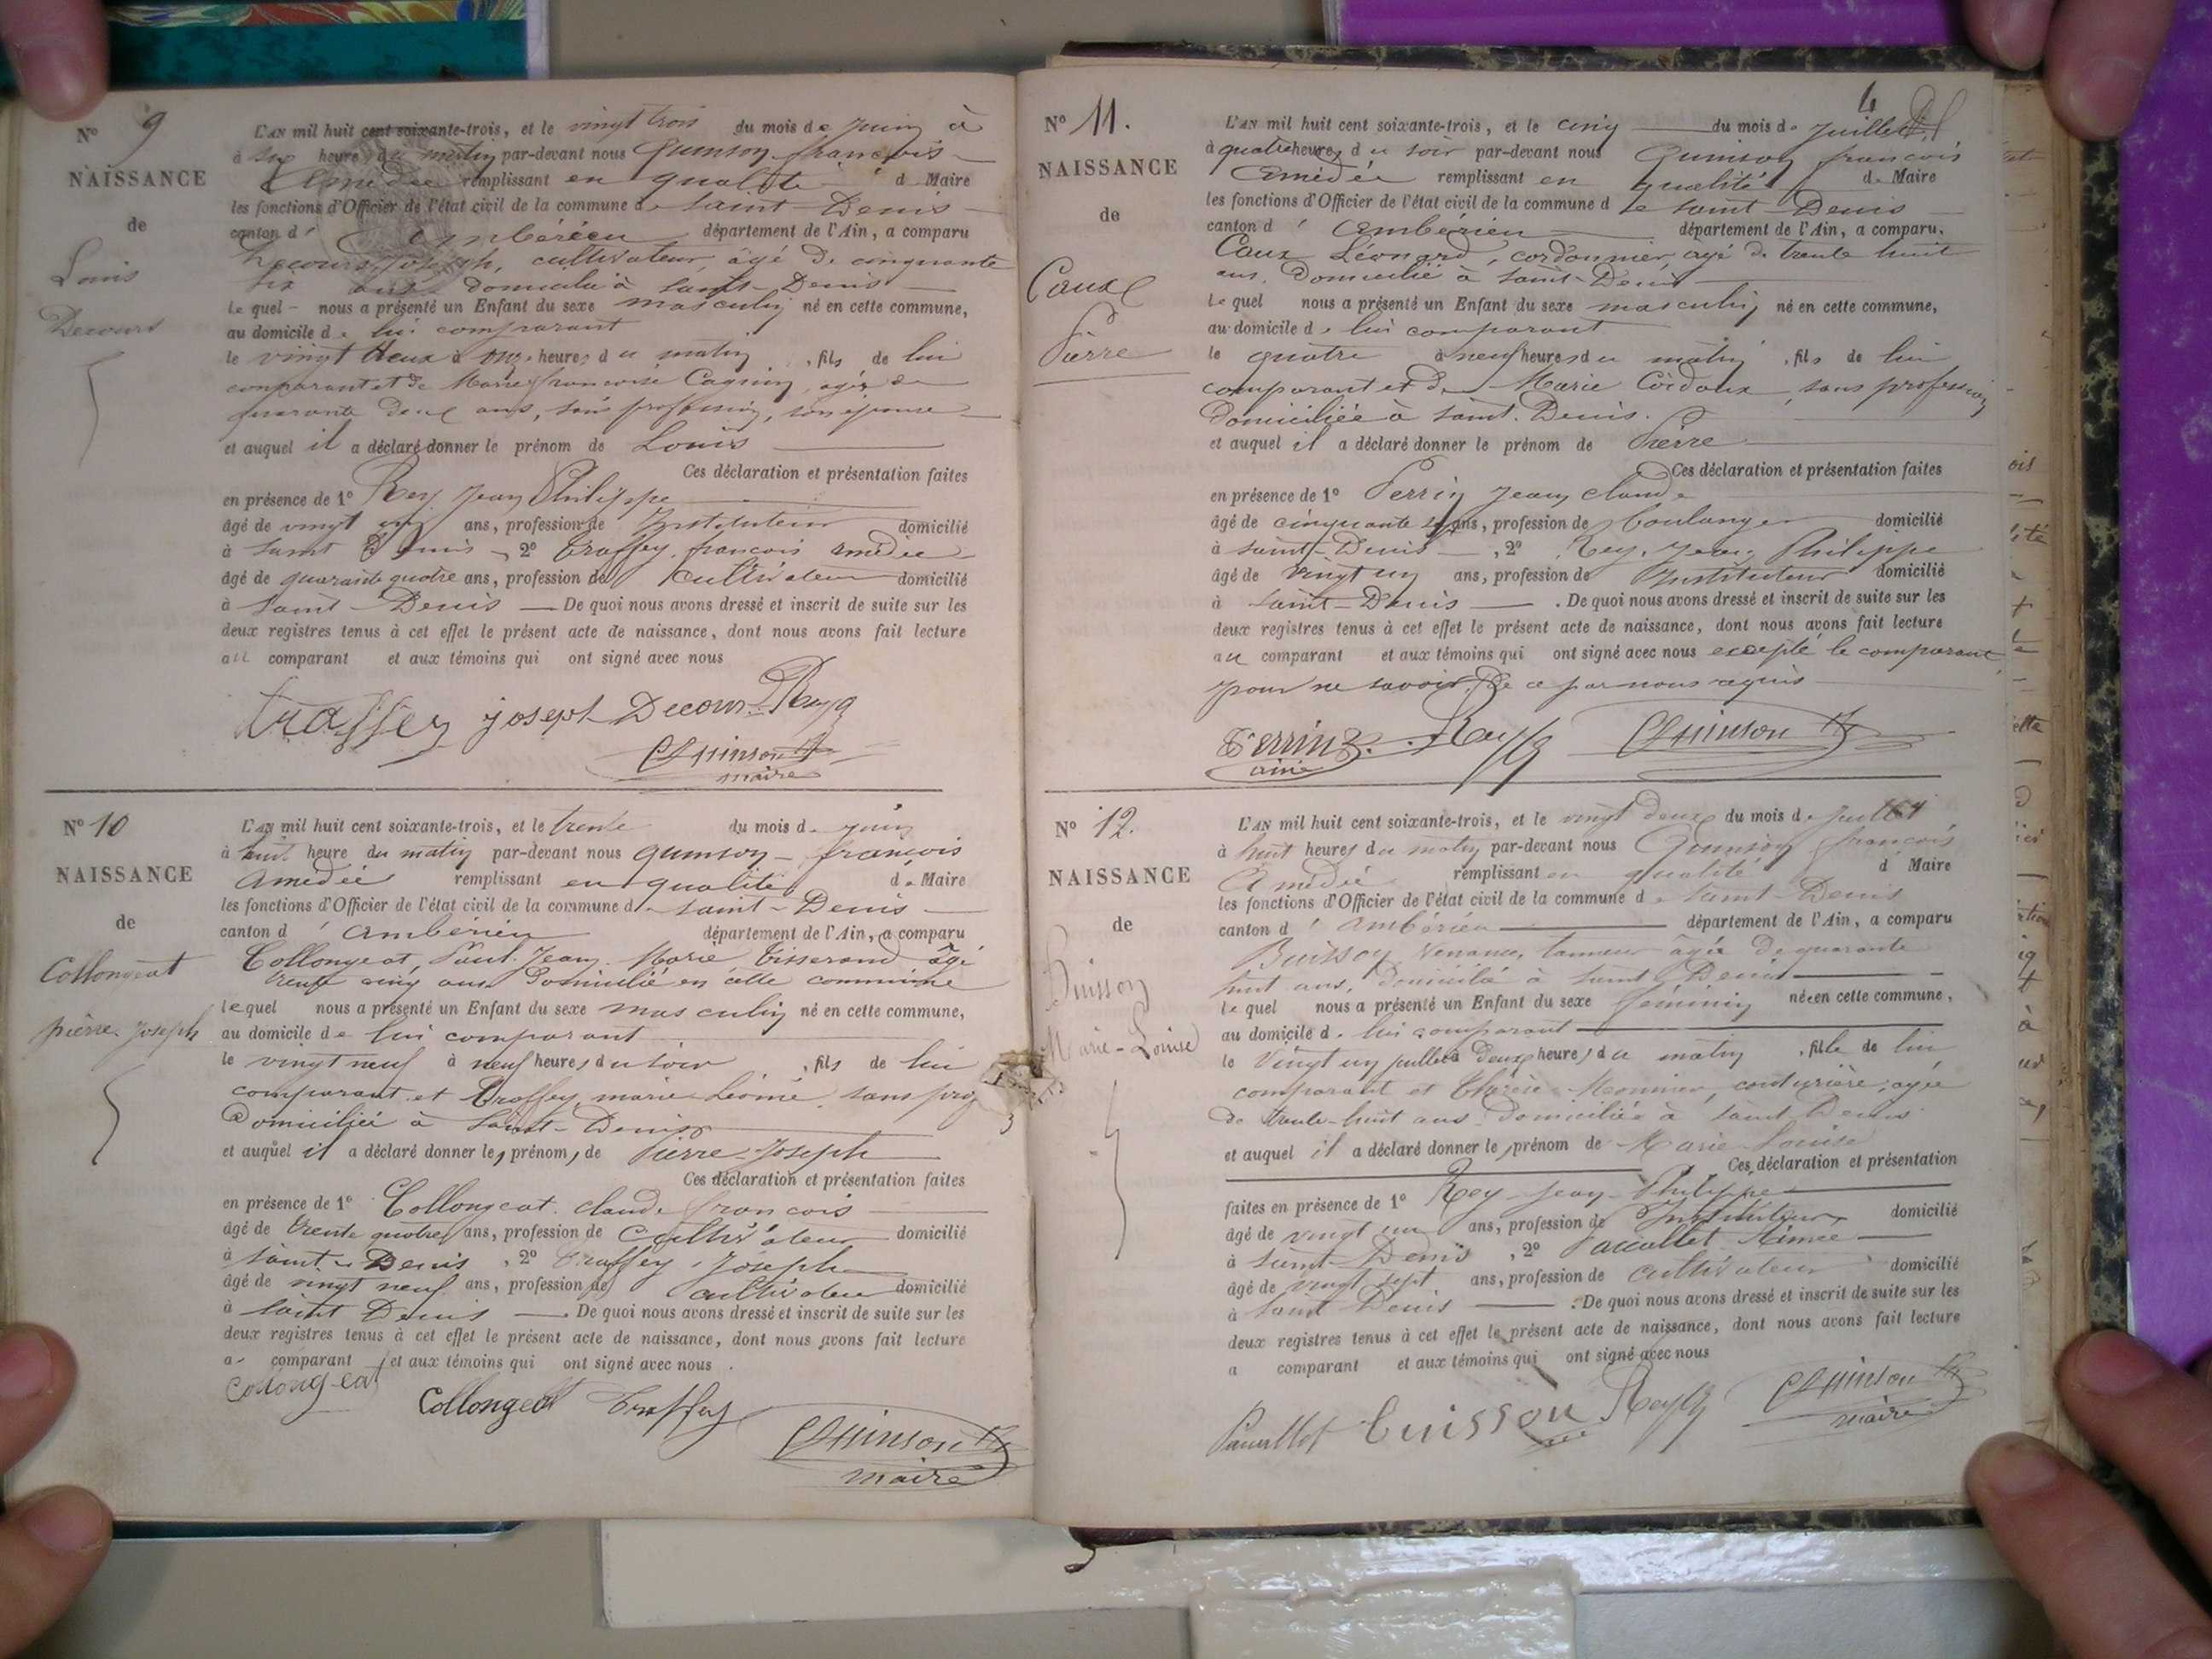 N° 9
NAISSANCE
de
Louis
Decours
L'AN mil huit cent soixante-trois, et le vingt trois du mois de juin à
à six heure du matin par-devant nous Quinson françois
Amédée remplissant en qualité d Maire
les fonctions d'Officier de l'état civil de la commune de Saint-Denis
canton d' Ambérieu département de l'Ain, a comparu
Decours Joseph, cultivateur, âgé de cinquante
six ans domicilié à Saint-Denis
Le quel nous a présenté un Enfant du sexe masculin né en cette commune,
au domicile de lui comparant
le vingt deux à onze heures du matin, fils de lui
comparant et de Marie françoise Cagnin, agée de
quarante deux ans, sans profession, son épouse
et auquel il a déclaré donner le prénom de Louis
Ces déclaration et présentation faites
en présence de 1° Rey Jean Philippe
âgé de vingt un ans, profession de Instituteur domicilié
à Saint Denis, 2° Traffey françois amédée
âgé de quarante quatre ans, profession de cultivateur domicilié
à Saint-Denis De quoi nous avons dressé et inscrit de suite sur les
deux registres tenus à cet effet le présent acte de naissance, dont nous avons fait lecture
au comparant et aux témoins qui ont signé avec nous
traffey joseph Decour Rey
Quinson
maire
N° 10
NAISSANCE
de
Collongeat
pierre Joseph
L'AN mil huit cent soixante-trois, et le trente du mois de juin
à huit heure du matin par-devant nous quinson françois
Amédée remplissant en qualité de Maire
les fonctions d'Officier de l'état civil de la commune de Saint-Denis
canton d' Ambérieu département de l'Ain, a comparu
Collongeat, Paul Jean Marie Tisserand âgé
trente cinq ans domicilié en cette commune
lequel nous a présenté un Enfant du sexe masculin né en cette commune,
au domicile de lui comparant
le vingt neuf à neuf heures du soir, fils de lui
comparant et Traffey marie Léonie sans prof
domiciliée à Saint-Denis
et auquel il a déclaré donner les prénoms de Pierre Joseph
Ces déclaration et présentation faites
en présence de 1° Collongeat claude françois
âgé de trente quatre ans, profession de cultivateur domicilié
à Saint-Denis, 2° Traffey, Joseph
âgé de vingt neuf ans, profession de cultivateur domicilié
à Saint Denis De quoi nous avons dressé et inscrit de suite sur les
deux registres tenus à cet effet le présent acte de naissance, dont nous avons fait lecture
a comparant et aux témoins qui ont signé avec nous.
Collongeat Collongeat Traffey
Quinson
maire
6
N° 11.
NAISSANCE
de
Caux
Pierre
L'AN mil huit cent soixante-trois, et le cinq du mois de Juillet
à quatre heures du soir par-devant nous Quinson françois
Amédée remplissant en qualité de Maire
les fonctions d'Officier de l'état civil de la commune de Saint-Denis
canton d' Ambérieu département de l'Ain, a comparu,
Caux Léonard, cordonnier, agé de trente huit
ans, domicilié à Saint-Denis
Le quel nous a présenté un Enfant du sexe masculin né en cette commune,
au domicile de lui comparant
le quatre à neuf heures du matin, fils de lui
comparant et de Marie Cordoux, sans profession
domiciliée à Saint-Denis.
et auquel il a déclaré donner le prénom de Pierre
Ces déclaration et présentation faites
en présence de 1° Perrin Jean claude
âgé de cinquante ans, profession de boulanger domicilié
à Saint-Denis, 2° Rey, Jean Philippe
âgé de vingt un ans, profession de Instituteur domicilié
à Saint-Denis. De quoi nous avons dressé et inscrit de suite sur les
deux registres tenus à cet effet le présent acte de naissance, dont nous avons fait lecture
au comparant et aux témoins qui ont signé avec nous excepté le comparant
pour ne savoir de ce par nous requis
Perrin Rey Quinson
ainé
N° 12.
NAISSANCE
de
Buisson
Marie-Louise
L'AN mil huit cent soixante-trois, et le vingt deux du mois de Juillet
à huit heures du matin par-devant nous Quinson françois
Amédée remplissant en qualité d Maire
les fonctions d'Officier de l'état civil de la commune de Saint-Denis
canton d' Ambérieu département de l'Ain, a comparu
Buisson Venance, tanneur agée de quarante
huit ans, domicilié à Saint Denis
Le quel nous a présenté un Enfant du sexe féminin née en cette commune,
au domicile de lui comparant
le Vingt un juillet à deux heures du matin, fille de lui
comparant et Thérèse Monnier, couturière, agée
de trente-huit ans domiciliée à Saint Denis
et auquel il a déclaré donner le prénom de Marie Louise
Ces déclaration et présentation
faites en présence de 1° Rey Jean-Philippe
âgé de vingt un ans, profession de Instituteur domicilié
à Saint-Denis, 2° Pacallet Aimée
âgé de vingt sept ans, profession de cultivateur domicilié
à Saint Denis. De quoi nous avons dressé et inscrit de suite sur les
deux registres tenus à cet effet le présent acte de naissance, dont nous avons fait lecture
a comparant et aux témoins qui ont signé avec nous
buisson Rey Quinson
maire